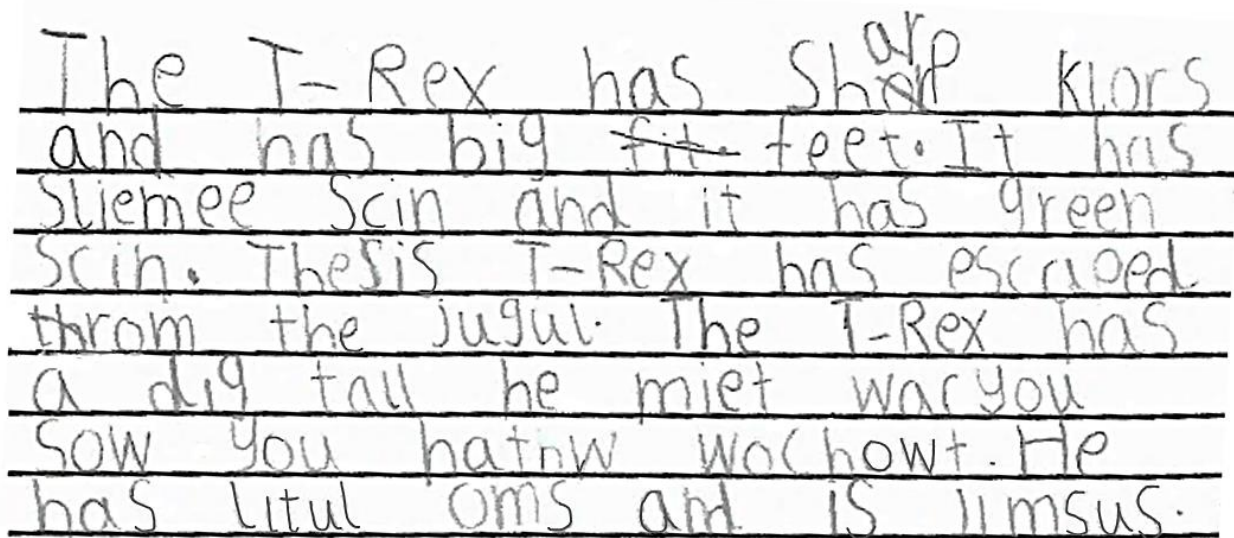 The T-Rex has Sharp Klors
and has big fit. feet. It has
Sliemee Scin and it has green
Scin. Thesis T-Rex has escaped
throm the jugul. The T-Rex has
a dig tall he miet war you
Sow you hatnw wochowt. He
has litul oms and is jimsus.